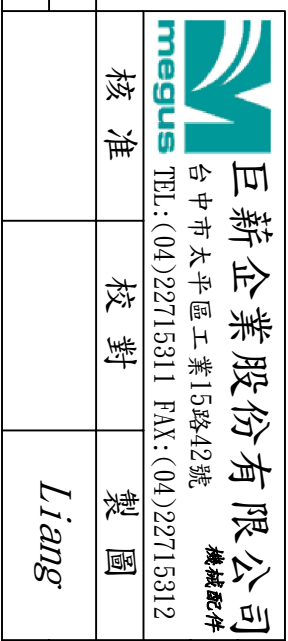 megus
巨薪企業股份有限公司
台中市太平區工業15路42號 機械配件
TEL:(04)22715311 FAX:(04)22715312
核 准 校 對 製 圖
Liang